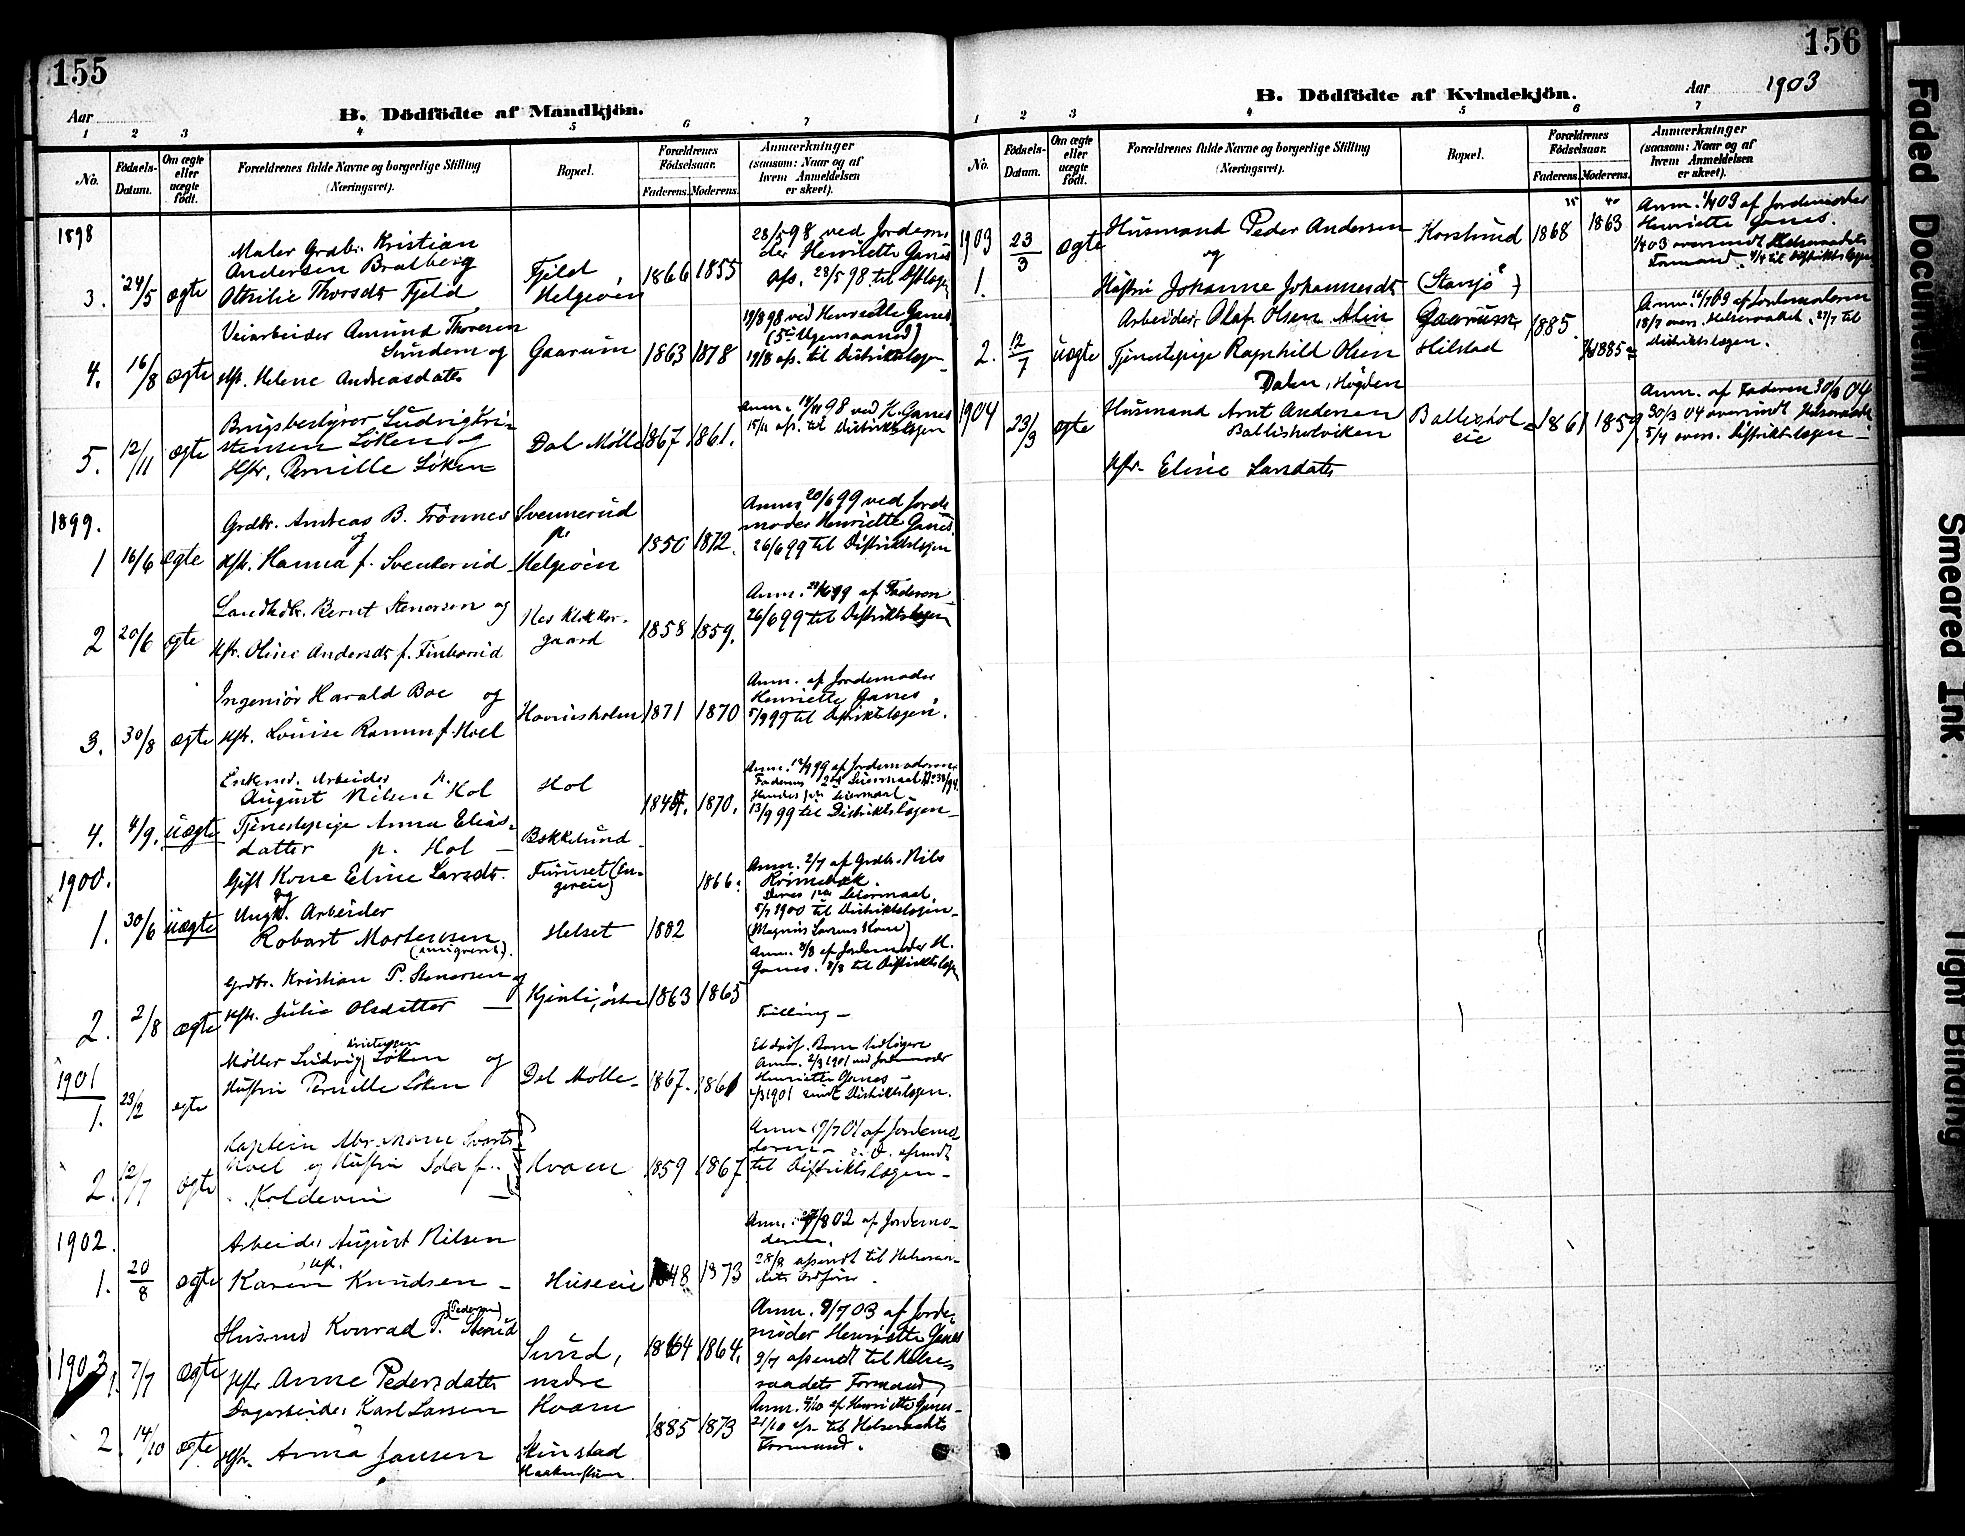 155
Aar
B. Dödfödte af Mandkjön.
1 2 3 4 5 6 7
No.
Födsels-Datum.
Om ægte eller uægte födt.
Forældrenes fulde Navne og borgerlige Stilling
(Næringsvei).
Bopæl.
Forældrenes Födselsaar.
Faderens. Moderens.
Anmærkninger
(saasom: Naar og af
hvem Anmeldelsen
er skeet).
1898
3. 24/5 ægte
Maler Grdbr. Kristian
Andersen Bratberg
Othilie Thorsdtr Fjeld
Fjeld
Helgeöen
1866 1855
28/5 98 ved Jordemo
der Henriette Ganes
afs. 28/5 98 til Dstlægen
4. 16/8 ægte
Veiarbeider Amund Thoresen
Sundem og
Hst. Helene Andreasdatter
Gaarum
1863 1878
19/8 98 ved Henriette Ganes
19/8 afs. til Distriktslægen
5. 12/11 ægte
Brugsbestyrer Ludvig Kri-
stensen Løken og
Hstr. Pernille Løken
Dal Mølle
1867. 1861.
Anm. 14/11 98 ved H. Ganes
15/11 afs. til Distriktslægen
1899.
1 16/6 ægte
Grdbr. Andreas B. Frönnes
og
Hst. Hanna f. Svennerud
Svennerud
p.
Helgeöen
1850 1872.
Anm. 20/6 99 ved Jorde
moder Henriette Ganes
26/6 99 til Distriktslægen
2 20/6 ægte
Landhdlr. Bernt Stenersen og
Hst. Oline Andersdtr f.
Nes Klokker-
gaard
1858 1859.
Anm. af Faderen
26/6 99 til Distriktslægen
3. 30/8 ægte
Ingeniör Harald Boe og
Hst. Louise Ramm f. Hoel
Hovinsholm
1871 1870
Anm. af Jordemoder
Henriette Ganes
5/9 99 til Distriktslægen.
4. 4/9. uægte
Enkemd. Arbeider p.
August Nilsen Hol
Tjenestepige Anna Elias-
datter p. Hol
Hol
Bekkelund
1870.
Anm. 12/9 99 af Jordemoderen
13/9 99 til Distriktslægen
1900.
1. 30/6 uægte
Gift Kone Eline Larsdtr.
og
Ungk. Arbeider
Robart Mortensen
(emigreret).
Furuset
Helset
1882 1866.
Anm. 2/7 af Grdbr. Nils
5/7 1900 til Distriktslægen
(Magnus Larsens Kone)
2. 2/8 ægte
Grdbr. Kristian P. Stenersen og
Hst. Julie Olsdatter
Kjinli, östre
1863 1865
Anm. 3/8 af Jordemoder H.
Ganes. 3/8 til Distriktslægen
Tvilling
1901
1. 23/2 ægte
Møller Ludvig Kristensen Løken og
Hustru Pernille Løken
Dal Mølle
1867. 1861
Et döpf. Barn tidligere
Anm. 2/3 1901 ved Jordemoder
Henriette Ganes
4/3 1901 sendt Distriktslægen.
2. 12/7 ægte
Kaptein Abraham
Hoel og Hustru Ida f.
Koldevin
Hvam
1859 1867
Anm. 17/7 01 af Jordemo
deren s. D. afsendt
til Distriktslægen
1902.
1. 20/8 ægte
Arbeider August Nilsen
Hst.
Karen Knudsen
Huseeie
1848 1873
Anm. /8 02 af Jordemo-
deren.
28/8 afsendt til Helseraa-
dets Ordförer.
1903
1. 7/7 ægte
Husmd Konrad P. (Pedersen) Sterud
Hst Anne Pedersdatter
Sund,
nedre
Hvam
1864 1864.
Anm. 8/7 03 af Jorde-
moder Henriette Ganes
9/7 afsendt til Helse-
raadets Formand
2 14/10 ægte
Dagarbeider Karl Larsen
Hst. Anna Jansen
Skinstad
1885 1873
Anm. /10 af Henriette Ganes
21/10 afs. til Helseraadets
Formand.
156
B. Dödfödte af Kvindekjön.
Aar 1903
1 2 3 4 5 6 7
No.
Födsels-Datum.
Om ægte eller uægte födt.
Forældrenes fulde Navne og borgerlige Stilling
(Næringsvei).
Bopæl.
Forældrenes Födselsaar.
Faderens. Moderens.
Anmærkninger
(saasom: Naar og af
hvem Anmeldelsen
er skeet).
1903
1. 23/3 ægte
Husmand Peder Andersen
og
Hustru Johanne Johannesdtr
Korslund
(Stavsjö)
35 40
1868 1863
Anm. 1/4 03 af Jordemoder
Henriette Ganes.
1/4 03 oversendt Helseraadets
Formand. 4/4 til Distriktslægen
2. 12/7 uægte
Arbeider Olaf Olsen Alin
Tjenestepige Ragnhild Olsen
Dalen, Högden
Gaarum
Hilstad
1885. 1885
Anm. 16/7 03 af Jordemoderen
18/7 overs. Helseraadet. 27/7 til
Distriktslægen.
1904
23/3 ægte
Husmand Arnt Andersen
Ballisholviken
Hstr. Eline Larsdatter
Ballishol
eie
1861 1859
Anm. af Faderen 30/3 04
30/3 04 oversendt Helseraadet
5/4 overs. Distriktslægen
Faded Document
Smeared Ink.
Tight Binding